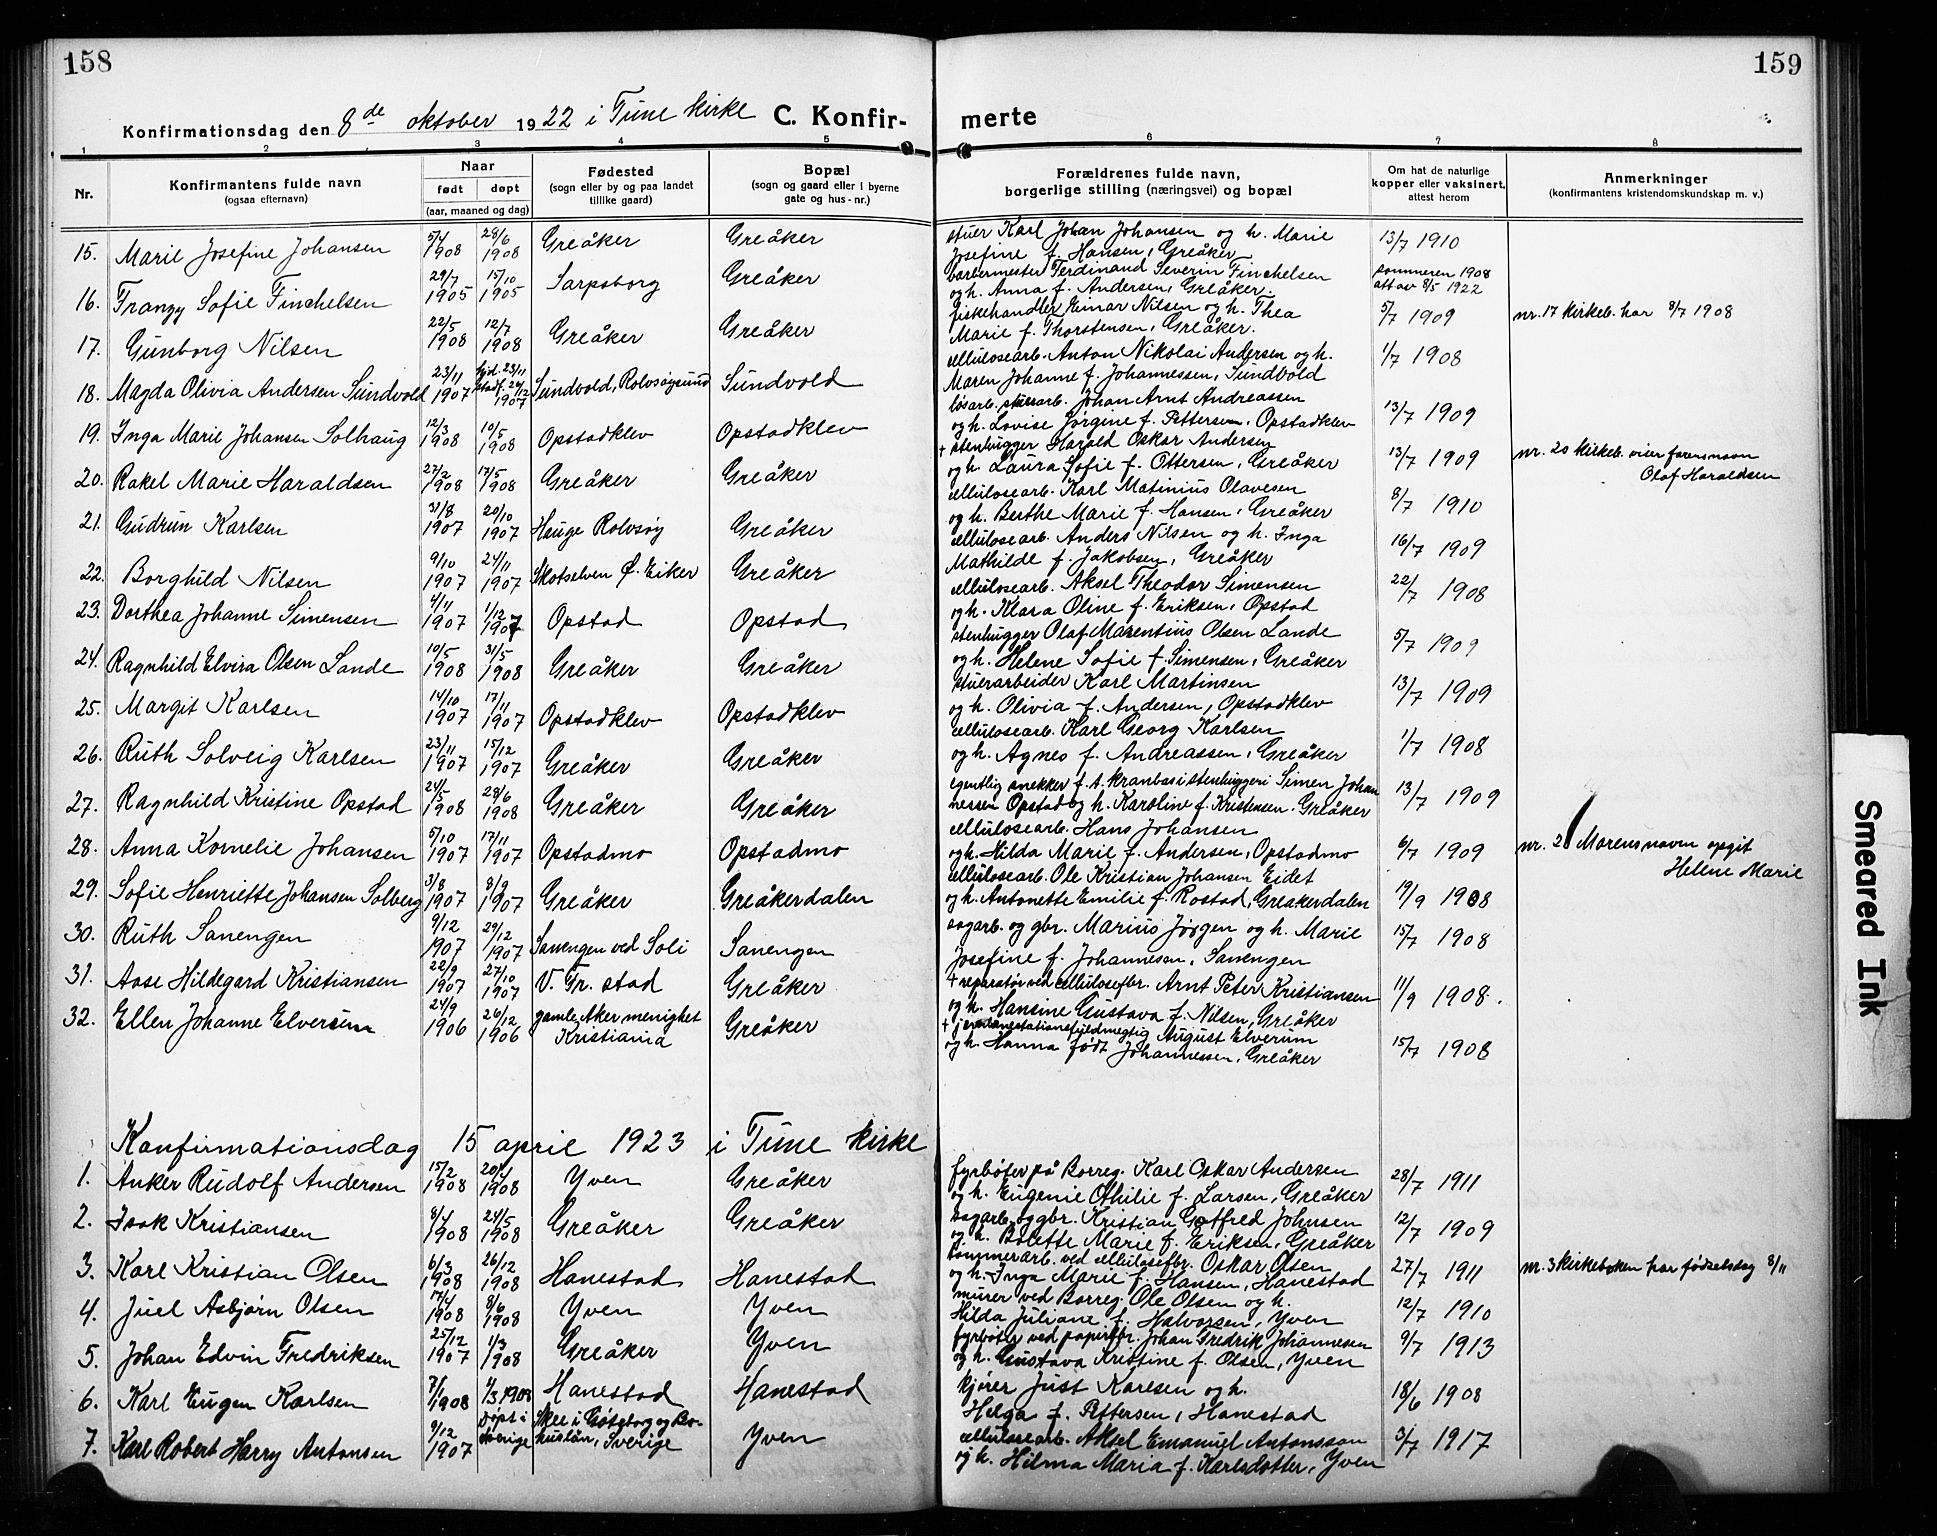 158
159
Konfirmationsdag den 8de oktober 1922 i Tune kirke C. Konfir-
merte
1 2 3 4 5 6 7 8
Nr.
Konfirmantens fulde navn
(ogsaa efternavn)
Naar
født døpt
(aar, maaned og dag)
Fødested
(sogn eller by og paa landet
tillike gaard)
Bopæl
(sogn og gaard eller i byerne
gate og hus-nr.)
Forældrenes fulde navn,
borgerlige stilling (næringsvei) og bopæl
Om hat de naturlige
kopper eller vaksinert,
attest herom
Anmerkninger
(konfirmantens kristendomskundskap m. v.)
15. Marie Josefine Johansen 5/4 1908 28/6 1908 Greåker Greåker
stuer Karl Johan Johansen og h. Marie
Josefine f. Hansen, Greåker
13/7 1910
16. Frangy Sofie Finchelsen 29/7 1905 15/10 1905 Sarpsborg Greåker
barbermester Ferdinand Severin Finchelsen
og h. Anna f. Andersen, Greåker.
sommeren 1908
att av 8/5 1922
17. Gunborg Nilsen 22/5 1908 12/7 1908 Greåker Greåker
fiskehandler Einar Nilsen og h. Thea
Marie f. Thorstensen, Greåker.
5/7 1909
nr. 17 kirkeb. har 8/7 1908
18. Magda Olivia Andersen Sundvold 23/11 1907 hjd. 23/11 stadf. 26/12 1907 Sundvold, Rolvsøysund Sundvold
cellulosearb. Anton Nikolai Andersen og h.
Maren Johanne f. Johannessen, Sundvold
1/7 1908
19. Inga Marie Johansen Solhaug 12/3 1908 10/5 1908 Opstadklev Opstadklev
løsarb. stuerarb. Johan Arnt Andreassen
og h. Lovise Jørgine f. Pettersen, Opstadklev
13/7 1909
20. Rakel Marie Haraldsen 27/2 1908 17/5 1908 Greåker Greåker
+ stenhugger Harald Oskar Andersen
og h. Laura Sofie f. Ottersen, Greåker
13/7 1909
nr. 20 kirkeb. viser farens navn
Olaf Haraldsen
21. Gudrun Karlsen 31/8 1907 20/10 1907 Hauge Rolvsøy Greåker
cellulosearb. Karl Matinius Olavesen
og h. Berthe Marie f. Hansen, Greåker
8/7 1910
22. Borghild Nilsen 9/10 1907 24/11 1907 Skotselven Ø. Eiker Greåker
cellulosearb. Anders Nilsen og h. Inga
Mathilde f. Jakobsen, Greåker
16/7 1909
23. Dorthea Johanne Simensen 4/11 1907 1/12 1907 Opstad Opstad
cellulosearb. Aksel Theodor Simensen
og h. Klara Oline f. Eriksen, Opstad
22/7 1908
24. Ragnhild Elvira Olsen Lande 10/5 1908 31/5 1908 Greåker Greåker
stenhugger Olaf Marentius Olsen Lande
og h. Helene Sofie f. Simensen, Greåker
5/7 1909
25. Margit Karlsen 14/10 1907 17/11 1907 Opstadklev Opstadklev
stuerarbeider Karl Martinsen
og h. Olivia f. Andersen, Opstadklev
13/7 1909
26. Ruth Solveig Karlsen 23/11 1907 15/12 1907 Greåker Greåker
cellulosearb. Karl Georg Karlsen
og h. Agnes f. Andreassen, Greåker
1/7 1908
27. Ragnhild Kristine Opstad 24/5 1908 28/6 1908 Greåker Greåker
egentlig snekker f. t. kranbas i stenhuggeri Simen Johan
nessen Opstad og h. Karoline f. Kristensen, Greåker
13/7 1909
28. Anna Kornelie Johansen 5/10 1907 17/11 1907 Opstadmo Opstadmo
cellulosearb. Hans Johansen
og h. Hilda Marie f. Andersen, Opstadmo
6/7 1909
nr. 28 Morens navn opgit
Helene Marie
29. Sofie Henriette Johansen Solberg 3/8 1907 8/9 1907 Greåker Greåkerdalen
cellulosearb. Ole Kristian Johansen Eidet
og h. Antonette Emilie f. Rostad, Greåkerdalen
19/9 1908
30. Ruth Sanengen 9/12 1907 29/12 1907 Sanengen ved Soli Sanengen
sagarb. og gbr. Marius Jørgen og h. Marie
Josefine f. Johannesen, Sanengen
15/7 1908
31. Aase Hildegard Kristiansen 22/9 1907 27/10 1907 V. Fr. stad Greåker
+ reparatør ved cellulosefbr. Arnt Peter Kristiansen
og h. Hansine Gustava f. Nilsen, Greåker
11/9 1908.
32. Ellen Johanne Elverum 24/9 1906 26/12 1906 gamle Aker menighet Kristiania Greåker
+ jernbanestationsfuldmegtig August Elverum
og h. Hanna født Johannessen, Greåker
15/7 1908
Konfirmationsdag 15 april 1923 i Tune kirke
1. Anker Rudolf Andersen 15/2 1908 20/4 1908 Yven Greåker
fyrbøter på Borreg. Karl Oskar Andersen
og h. Eugenie Othilie f. Larsen, Greåker
28/7 1911
2. Isak Kristiansen 8/4 1908 24/5 1908 Greåker Greåker
sagarb. og gbr. Kristian Gotfred Johnsen
og h. Bolette Marie f. Eriksen, Greåker
12/7 1909
3. Karl Kristian Olsen 6/3 1908 26/12 1908 Hanestad Hanestad
tømmerarb. ved cellulosefbr. Oskar Olsen
og h. Inga Marie f. Hansen, Hanestad
27/7 1911
nr. 3 kirkeboken har fødselsdag 8/11
4. Juel Asbjørn Olsen 17/4 1908 8/6 1908 Yven Yven
murer ved Borreg. Ole Olsen og h.
Hilda Juliane f. Halvorsen, Yven
12/7 1910
5. Johan Edvin Fredriksen 25/12 1907 1/3 1908 Greåker Yven
fyrbøter ved papirfbr. Johan Fredrik Johannesen
og h. Gustava Kristine f. Olsen, Yven
9/7 1913
6. Karl Eugen Karlsen 7/1 1908 1/3 1908 Hanestad Hanestad
kjører Just Karlsen og h.
Helga f. Pettersen, Hanestad
18/6 1908
7. Karl Robert Harry Antonsen 9/12 1907 Døpt i Sverige Skee i Gøteborg og Bo-
huslän, Sverige Yven
cellulosearb. Aksel Emanuel Antonsson
og h. Hilma Maria f. Karlsdotter, Yven
3/7 1917
Smeared Ink